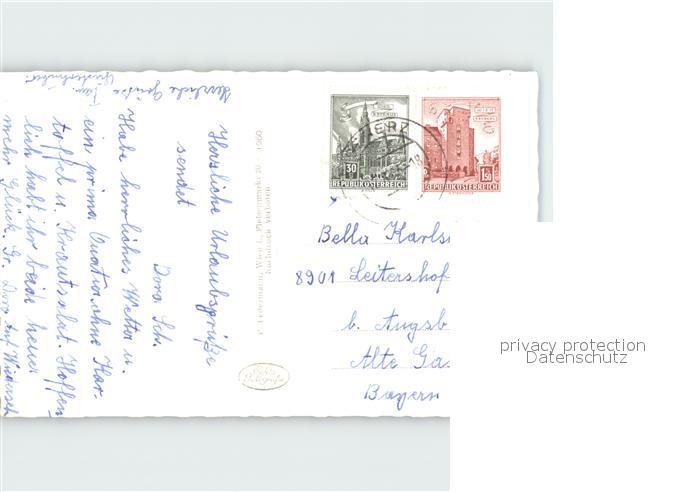 Herzliche Urlaubsgrüße
sendet
Dora Sch.
Habe herrliches Wetter u.
ein prima Quatier ohne Kar-
toffel u. Krautsalat. Hoffen
lich habt ihr beide heuer
mehr Glück. Gr. Dora Auf Wiederseh
Herrliche Grüße
Fam.
P. Ledermann, Wien I., 1960
Nachdruck verboten
Echte
Fotografie
30
REPUBLIK ÖSTERREICH
1.50
REPUBLIK ÖSTERREICH
Bella Karls
8901 Leitershof
b. Augsb
Alte Gas
Bayern
privacy protection
Datenschutz